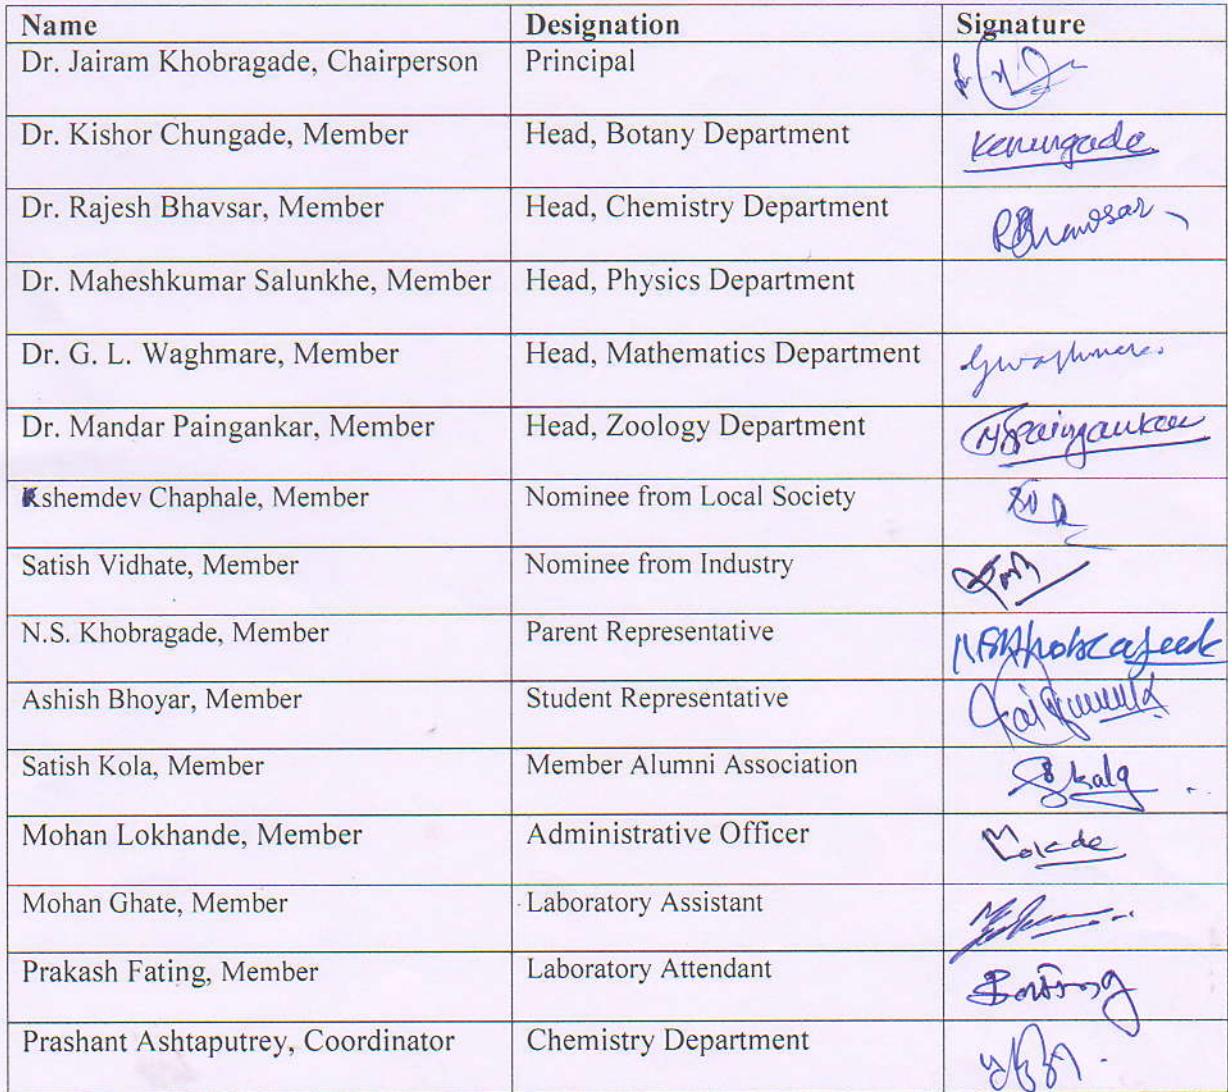 Name Designation Signature
Dr. Jairam Khobragade, Chairperson Principal
Dr. Kishor Chungade, Member Head, Botany Department Kchungade
Dr. Rajesh Bhavsar, Member Head, Chemistry Department RBhavsar
Dr. Maheshkumar Salunkhe, Member Head, Physics Department
Dr. G. L. Waghmare, Member Head, Mathematics Department Gwaghmare
Dr. Mandar Paingankar, Member Head, Zoology Department Paingankar
Kshemdev Chaphale, Member Nominee from Local Society
Satish Vidhate, Member Nominee from Industry
N.S. Khobragade, Member Parent Representative
Ashish Bhoyar, Member Student Representative
Satish Kola, Member Member Alumni Association
Mohan Lokhande, Member Administrative Officer
Mohan Ghate, Member Laboratory Assistant
Prakash Fating, Member Laboratory Attendant
Prashant Ashtaputrey, Coordinator Chemistry Department